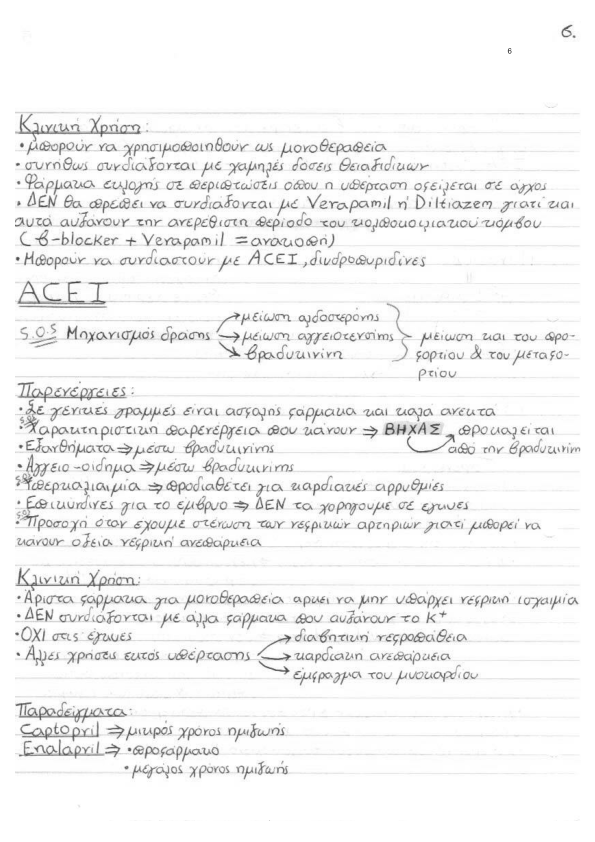 6.
6
Κλινική Χρήση:
• μπορούν να χρησιμοποιηθούν ως μονοθεραπεία
• συνήθως συνδιάζονται με χαμηλές δόσεις θειαζιδικών
• Φάρμακα εκλογής σε περιπτώσεις όπου η υπέρταση οξείλεται σε άγχος
• ΔΕΝ θα πρέπει να συνδιάζονται με Verapamil ή Diltiazem γιατί και
αυτά αυξάνουν την ανερέθιστη περίοδο του κολποκοιλιακού κόμβου
(β-blocker + Verapamil = ανακοπή)
• Μπορούν να συνδιαστούν με ACEI, διυδροπυριδίνες
ACEI
S.O.S Μηχανισμός δράσης → μείωση αλδοστερόνης
→ μείωση αγγειοτενσίνης
→ βραδυκινίνη
μείωση και του προ-
φορτίου & του μεταφο-
ρτίου
Παρενέργειες:
• Σε γενικές γραμμές είναι ασφαλή φάρμακα και καλά ανεκτά
S.O.S • Χαρακτηριστική παρενέργεια που κάνουν ⇒ ΒΗΧΑΣ → προκαλείται
από την βραδυκινίνη
• Εξανθήματα ⇒ μέσω βραδυκινίνης
• Αγγειο-οίδημα ⇒ μέσω βραδυκινίνης
S.O.S • Υπερκαλιαιμία ⇒ προδιαθέτει για καρδιακές αρρυθμίες
• Επικίνδυνες για το έμβρυο ⇒ ΔΕΝ τα χορηγούμε σε έγκυες
S.O.S • Προσοχή όταν έχουμε στένωση των νεφρικών αρτηριών γιατί μπορεί να
κάνουν οξεία νεφρική ανεπάρκεια
Κλινική Χρήση:
• Άριστα φάρμακα για μονοθεραπεία αρκεί να μην υπάρχει νεφρική ισχαιμία
• ΔΕΝ συνδιάζονται με άλλα φάρμακα που αυξάνουν το K⁺
• ΟΧΙ στις έγκυες
• Άλλες χρήσεις εκτός υπέρτασης → διαβητική νεφροπάθεια
→ καρδιακή ανεπάρκεια
→ έμφραγμα του μυοκαρδίου
Παραδείγματα:
Captopril ⇒ μικρός χρόνος ημιζωής
Enalapril ⇒ • προφάρμακο
• μεγάλος χρόνος ημιζωής